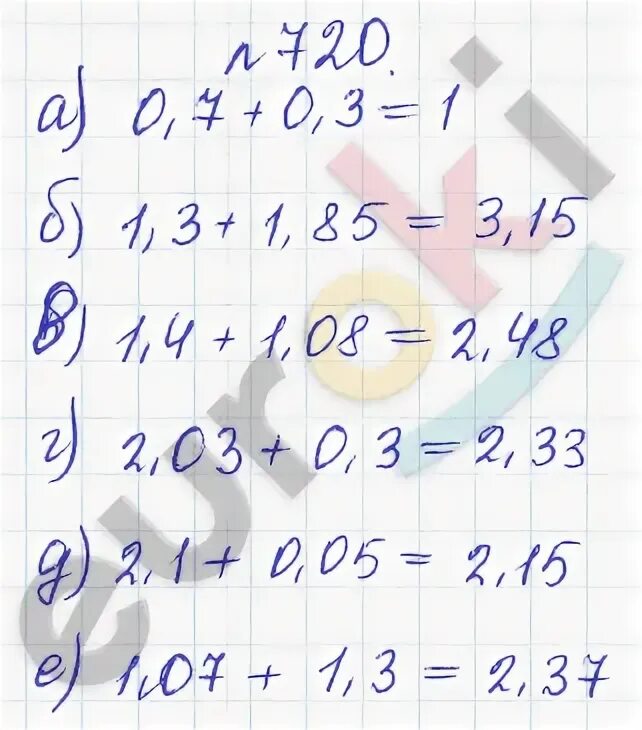 n 720.
а) 0,7 + 0,3 = 1
б) 1,3 + 1,85 = 3,15
в) 1,4 + 1,08 = 2,48
г) 2,03 + 0,3 = 2,33
д) 2,1 + 0,05 = 2,15
е) 1,07 + 1,3 = 2,37
euroki